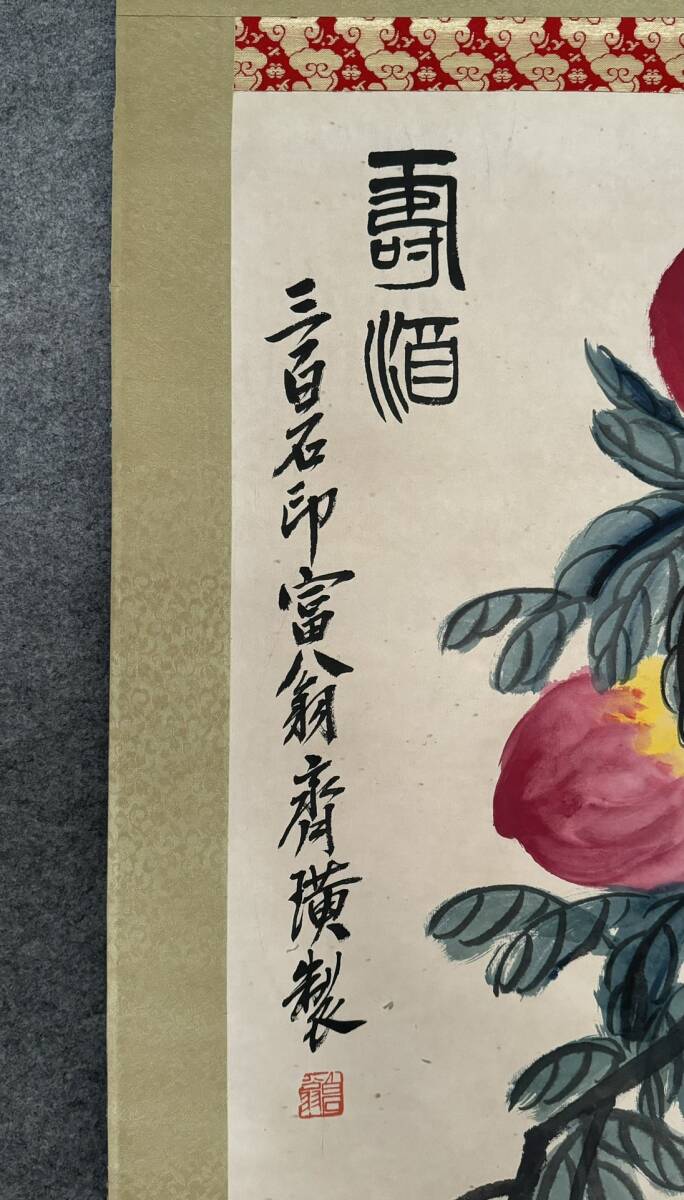 壽酒
三百石印富翁齊璜製
白翁